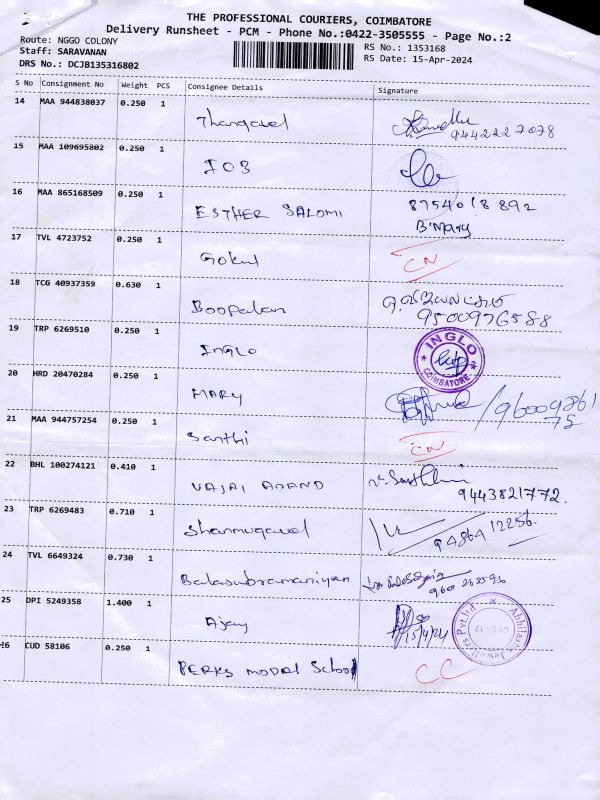 THE PROFESSIONAL COURIERS, COIMBATORE
Delivery Runsheet - PCM - Phone No.:0422-3505555 - Page No.:2
Route: NGGO COLONY
RS No.: 1353168
Staff: SARAVANAN
RS Date: 15-Apr-2024
DRS No.: DCJB135316802
S No Consignment No Weight PCS Consignee Details Signature
14 MAA 944838037 0.250 1 Thangavel
9442227078
15 MAA 109695802 0.250 1 IOB
16 MAA 865168509 0.250 1 ESTHER SALOMI 8754018892
B.Mary
17 TVL 4723752 0.250 1 Gokul CN
18 TCG 40937359 0.630 1 Boopalan
9500976588
19 TRP 6269510 0.250 1 INGLO INGLO
COIMBATORE
20 HRD 20470284 0.250 1 MARY /96009861
75
21 MAA 944757254 0.250 1 Santhi CN
22 BHL 100274121 0.410 1 VAJAI ANAND
9443821772.
23 TRP 6269483 0.710 1 Shanmugavel
24 TVL 6649324 0.730 1 Balasubramaniyan
25 DPI 5249358 1.400 1 Ajay 15/4/24 Jewellers Pvt.ltd
26 CUD 58106 0.250 1 PERKS MODEL School CC